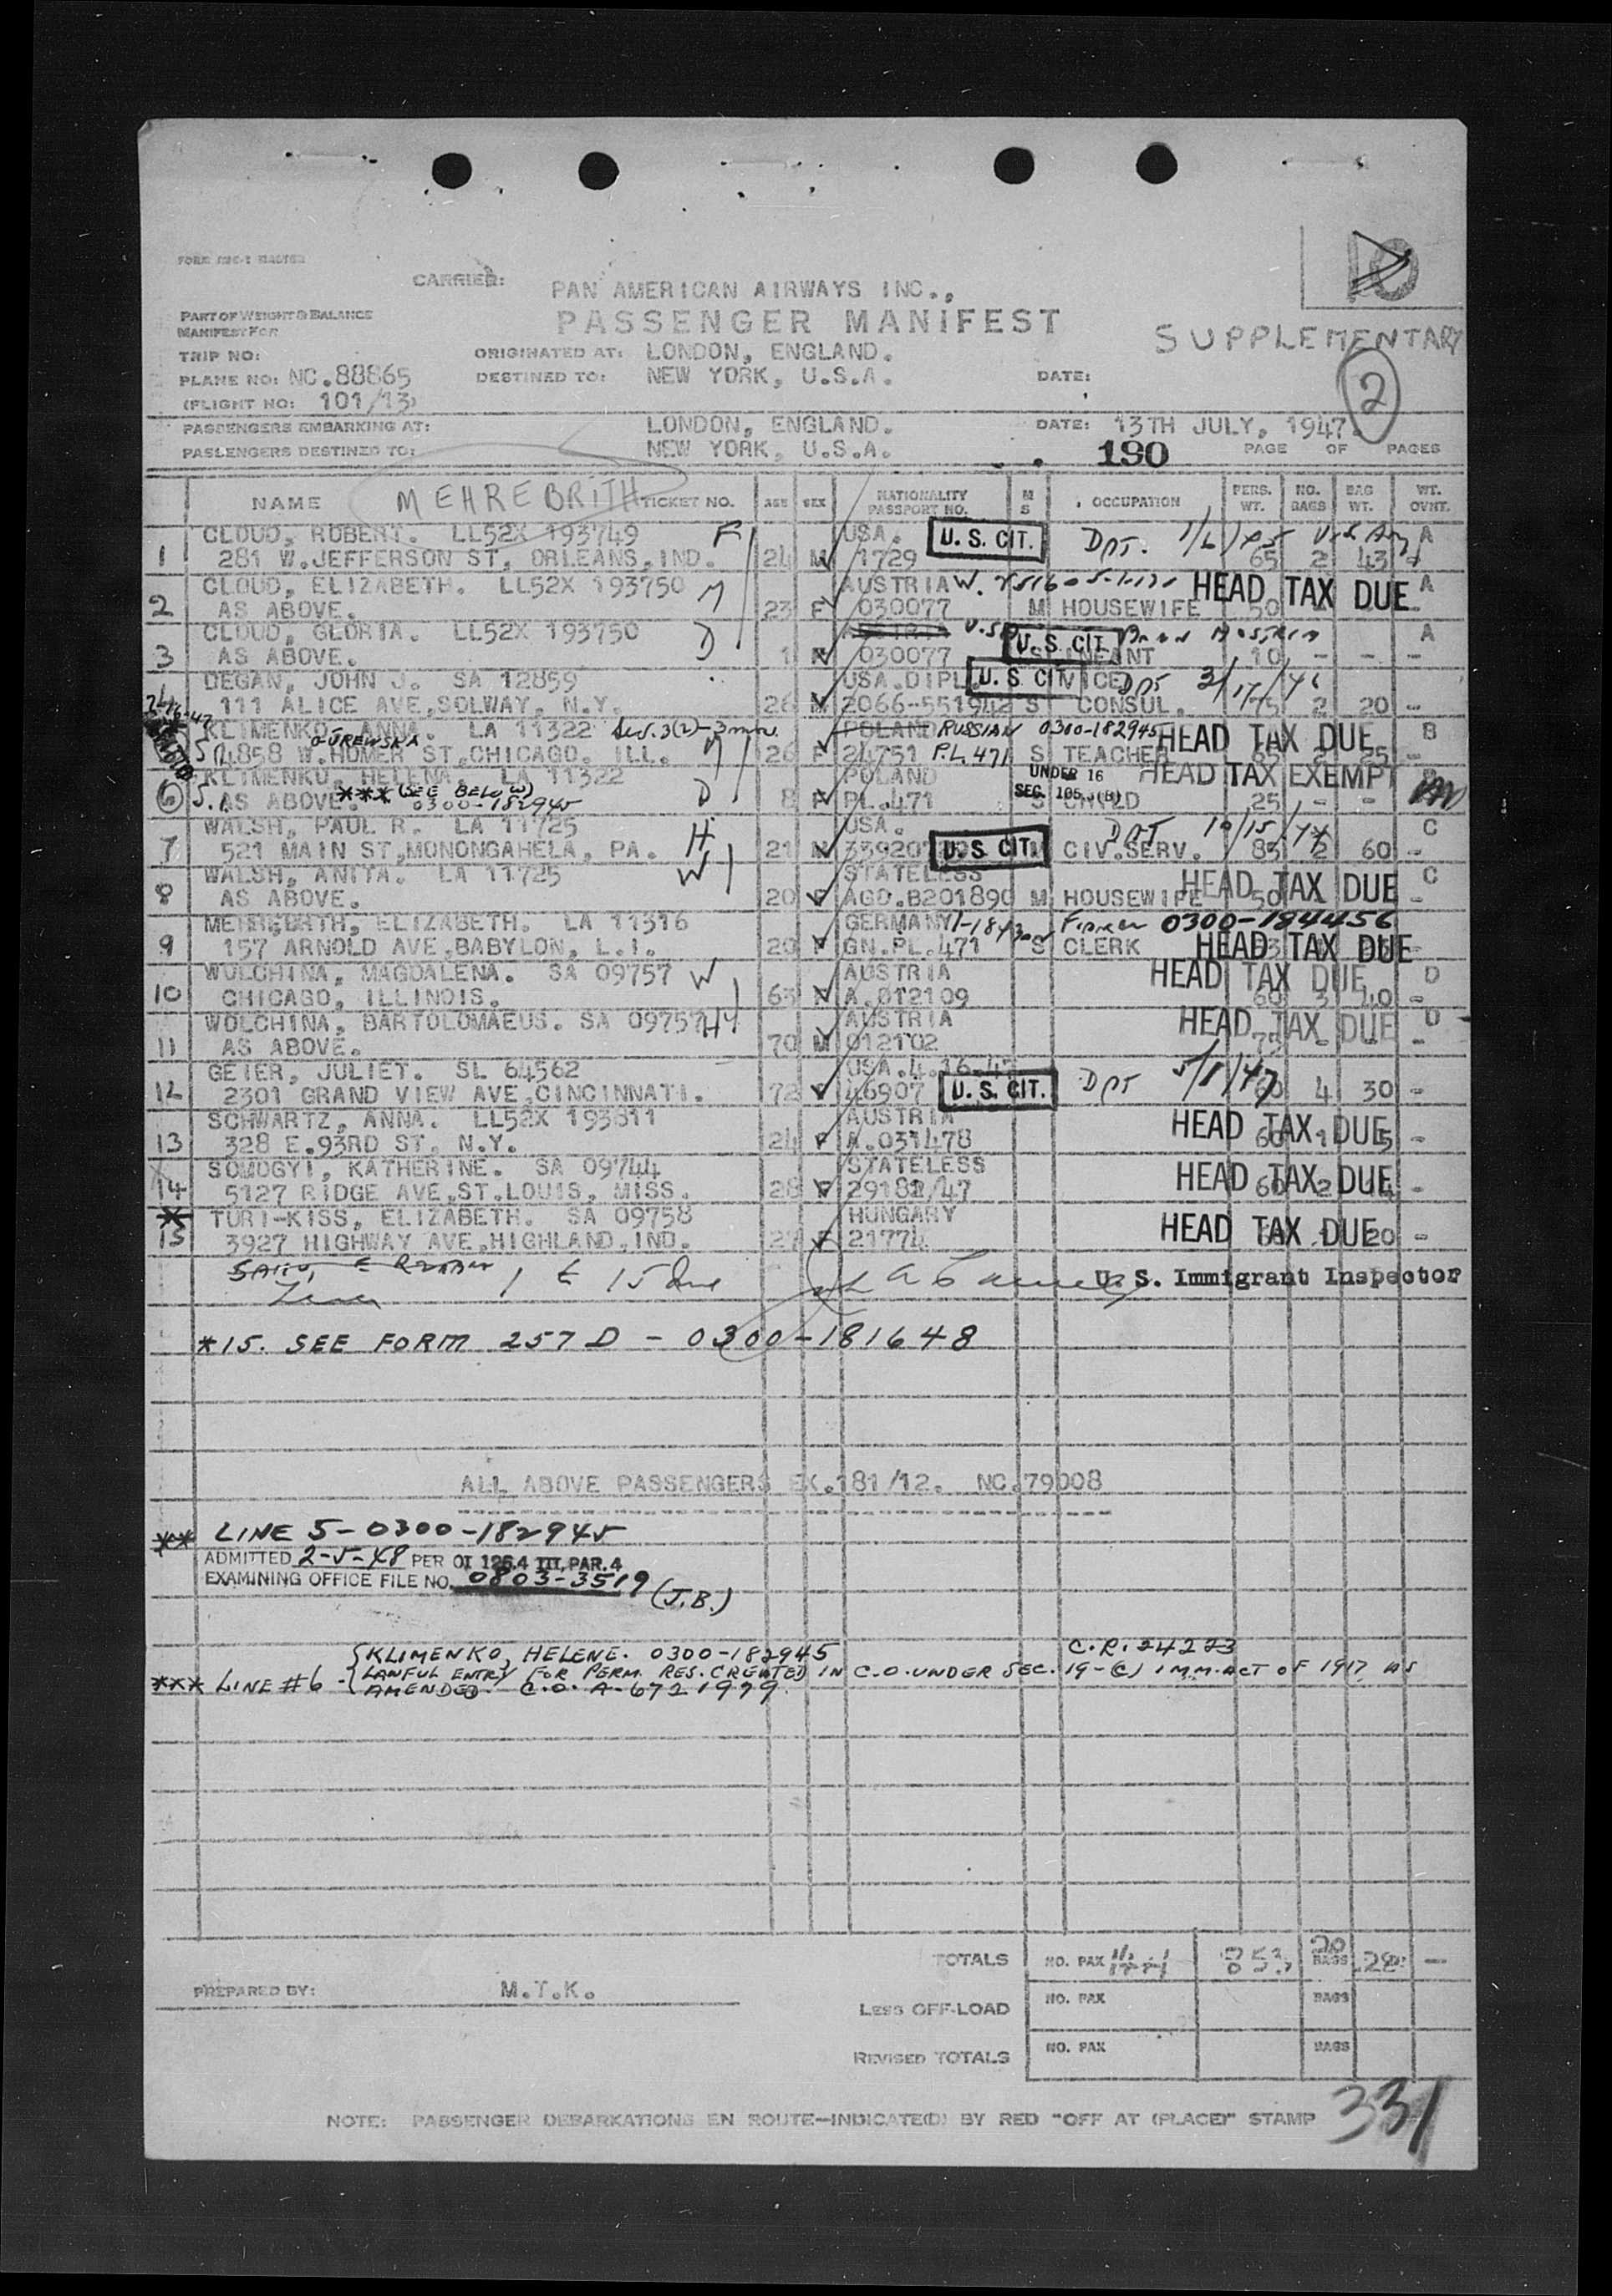 CARRIER: PAN AMERICAN AIRWAYS INC.,
PASSENGER MANIFEST
SUPPLEMENTARY
PART OF WEIGHT & BALANCE
MANIFEST FOR
TRIP NO: ORIGINATED AT: LONDON, ENGLAND.
PLANE NO: NC.88865 DESTINED TO: NEW YORK, U.S.A. DATE: 2
(FLIGHT NO: 101/13)
PASSENGERS EMBARKING AT: LONDON, ENGLAND. DATE: 13TH JULY, 1947.
PASSENGERS DESTINED TO: NEW YORK, U.S.A. 190 PAGE OF PAGES
NAME MEHREBRITH TICKET NO. AGE SEX NATIONALITY PASSPORT NO. M S OCCUPATION PERS. WT. NO. BAGS BAG WT. WT. OVNT.
CLOUD, ROBERT. LL52X 193749 F USA. U. S. CIT. A
1 281 W.JEFFERSON ST, ORLEANS, IND. 24 M 1729 65 2 43
CLOUD, ELIZABETH. LL52X 193750 M AUSTRIA HEAD TAX DUE A
2 AS ABOVE. 23 F 030077 M HOUSEWIFE 50
CLOUD, GLORIA. LL52X 193750 D U. S. CIT. A
3 AS ABOVE. 1 030077 S INFANT 10 - - -
DEGAN, JOHN J. SA 12859 USA.DIPL. U. S. CIT. VICE
111 ALICE AVE,SOLWAY, N.Y. 26 M 2066-551942 S CONSUL. 75 2 20 -
KLIMENKO, ANNA. LA 11322 POLAND RUSSIAN 0300-182945 HEAD TAX DUE B
4858 W.HOMER ST,CHICAGO, ILL. M 26 F 24751 P.L. 471 S TEACHER 25 -
KLIMENKO, HELENA. LA 11322 POLAND UNDER 16 HEAD TAX EXEMPT
6 AS ABOVE. *** (SEE BELOW) 0300-182945 D 8 F PL.471 S CHILD 25 - -
WALSH, PAUL R. LA 11725 H USA. C
7 521 MAIN ST,MONONGAHELA, PA. 21 M U. S. CIT. CIV.SERV. 85 2 60 -
WALSH, ANITA. LA 11725 W STATELESS HEAD TAX DUE C
8 AS ABOVE. 20 F AGO.B201890 M HOUSEWIFE 50 -
ELIZABETH. LA 11316 GERMANY 0300-184456
9 157 ARNOLD AVE,BABYLON, L.I. 20 F GN.PL.471 S CLERK HEAD TAX DUE
WOLCHINA, MAGDALENA. SA 09757 W AUSTRIA HEAD TAX DUE D
10 CHICAGO, ILLINOIS. 63 F A.012109 60 3 40 -
WOLCHINA, BARTOLOMAEUS. SA 09757 H AUSTRIA HEAD TAX DUE D
11 AS ABOVE. 70 M 012102 -
GEIER, JULIET. SL 64562 USA.4.16.47
12 2301 GRAND VIEW AVE,CINCINNATI. 72 F 46907 U. S. CIT. 5/1/47 60 4 30 -
SCHWARTZ, ANNA. LL52X 193811 AUSTRIA HEAD TAX DUE
13 328 E.93RD ST, N.Y. 24 F A.031478 60 1 5 -
SOMOGYI, KATHERINE. SA 09744 STATELESS HEAD TAX DUE
14 5127 RIDGE AVE,ST.LOUIS, MISS. 28 F 29182/47 60 2 -
* TURI-KISS, ELIZABETH. SA 09758 HUNGARY HEAD TAX DUE
15 3927 HIGHWAY AVE,HIGHLAND,IND. 27 F 21774 20 -
U. S. Immigrant Inspector
*15. SEE FORM 257 D - 0300-181648
ALL ABOVE PASSENGERS EX.181/12. NC.79008
** LINE 5-0300-182945
ADMITTED 2-5-48 PER OI 126.4 III, PAR. 4
EXAMINING OFFICE FILE NO. 0803-3519 (J.B.)
KLIMENKO, HELENE. 0300-182945 C.R. 24223
*** LINE #6 - LAWFUL ENTRY FOR PERM. RES. CREATED IN C.O. UNDER SEC. 19-(C) IMM. ACT OF 1917 AS
AMENDED. C.O. A-6721979
TOTALS NO. PAX 853 20 BAGS -
PREPARED BY: M.T.K. NO. PAX BAGS
LESS OFF-LOAD
REVISED TOTALS NO. PAX BAGS
331
NOTE: PASSENGER DEBARKATIONS EN ROUTE—INDICATE(D) BY RED "OFF AT (PLACE)" STAMP